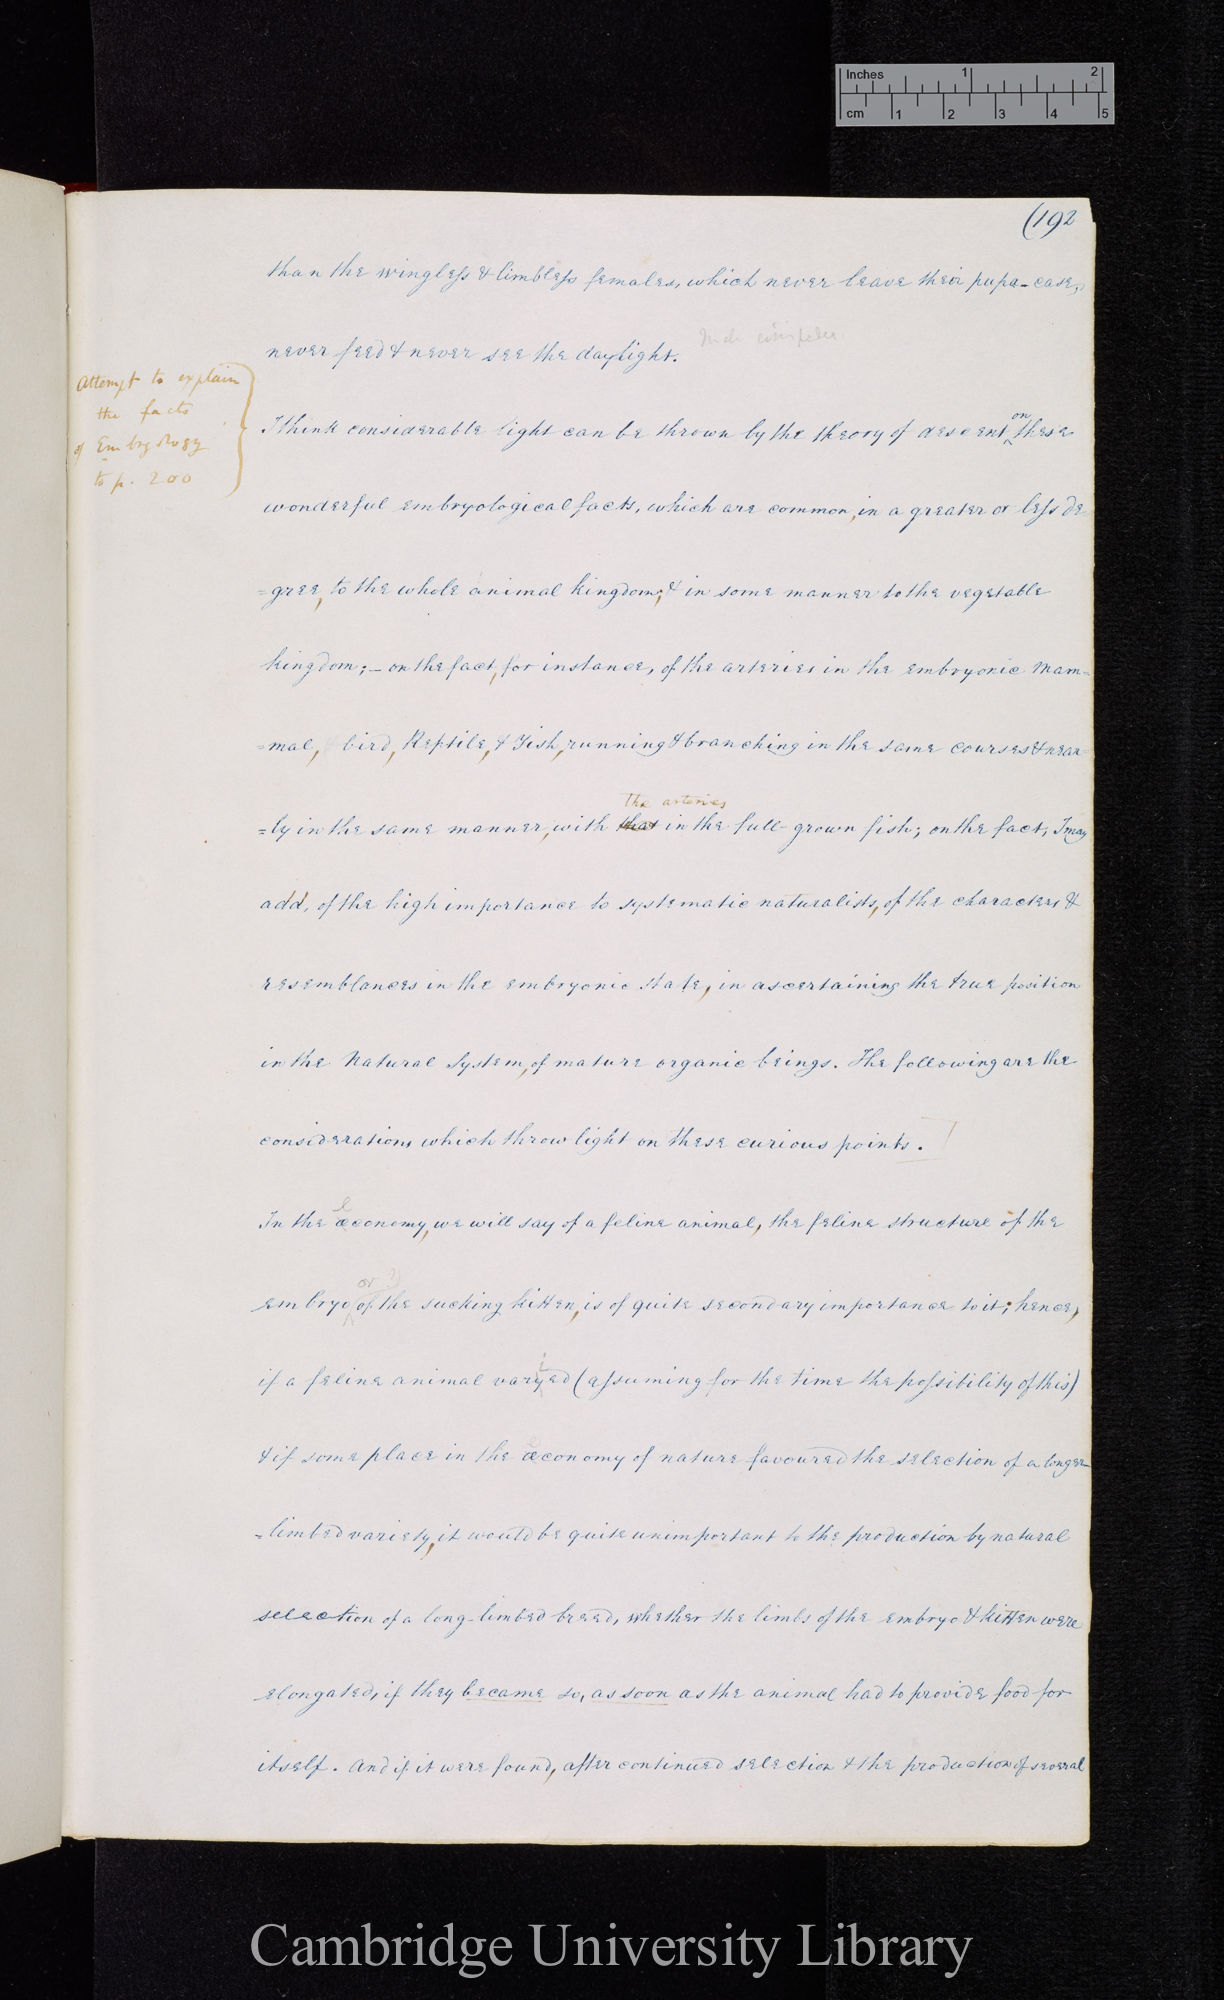 Inches 1 2
cm 1 2 3 4 5
(192
than the wingless & limbless females, which never leave their pupa-case,
never feed & never see the daylight.
Attempt to explain
the facts
of Embryology
to p. 200
I think considerable light can be thrown by the theory of descent on these
wonderful embryological facts, which are common, in a greater or less de
=gree, to the whole animal kingdom; & in some manner to the vegetable
kingdom; – on the fact, for instance, of the arteries in the embryonic Mam-
=mal, bird, Reptile, & Fish, running & branching in the same courses & near
=ly in the same manner, with that the arteries in the full-grown fish; on the fact, I may
add, of the high importance to systematic naturalists, of the characters &
resemblances in the embryonic state, in ascertaining the true position
in the Natural System, of mature organic beings. The following are the
considerations which throw light on these curious points.
In the œconomy, we will say of a feline animal, the feline structure of the
embryo or of the sucking kitten, is of quite secondary importance to it; hence,
if a feline animal varyed (assuming for the time the possibility of this)
& if some place in the œconomy of nature favoured the selection of a longer-
=limbed variety, it would be quite unimportant to the production by natural
selection of a long-limbed breed, whether the limbs of the embryo & kitten were
elongated, if they became so, as soon as the animal had to provide food for
itself. And if it were found, after continued selection & the production of several
Cambridge University Library